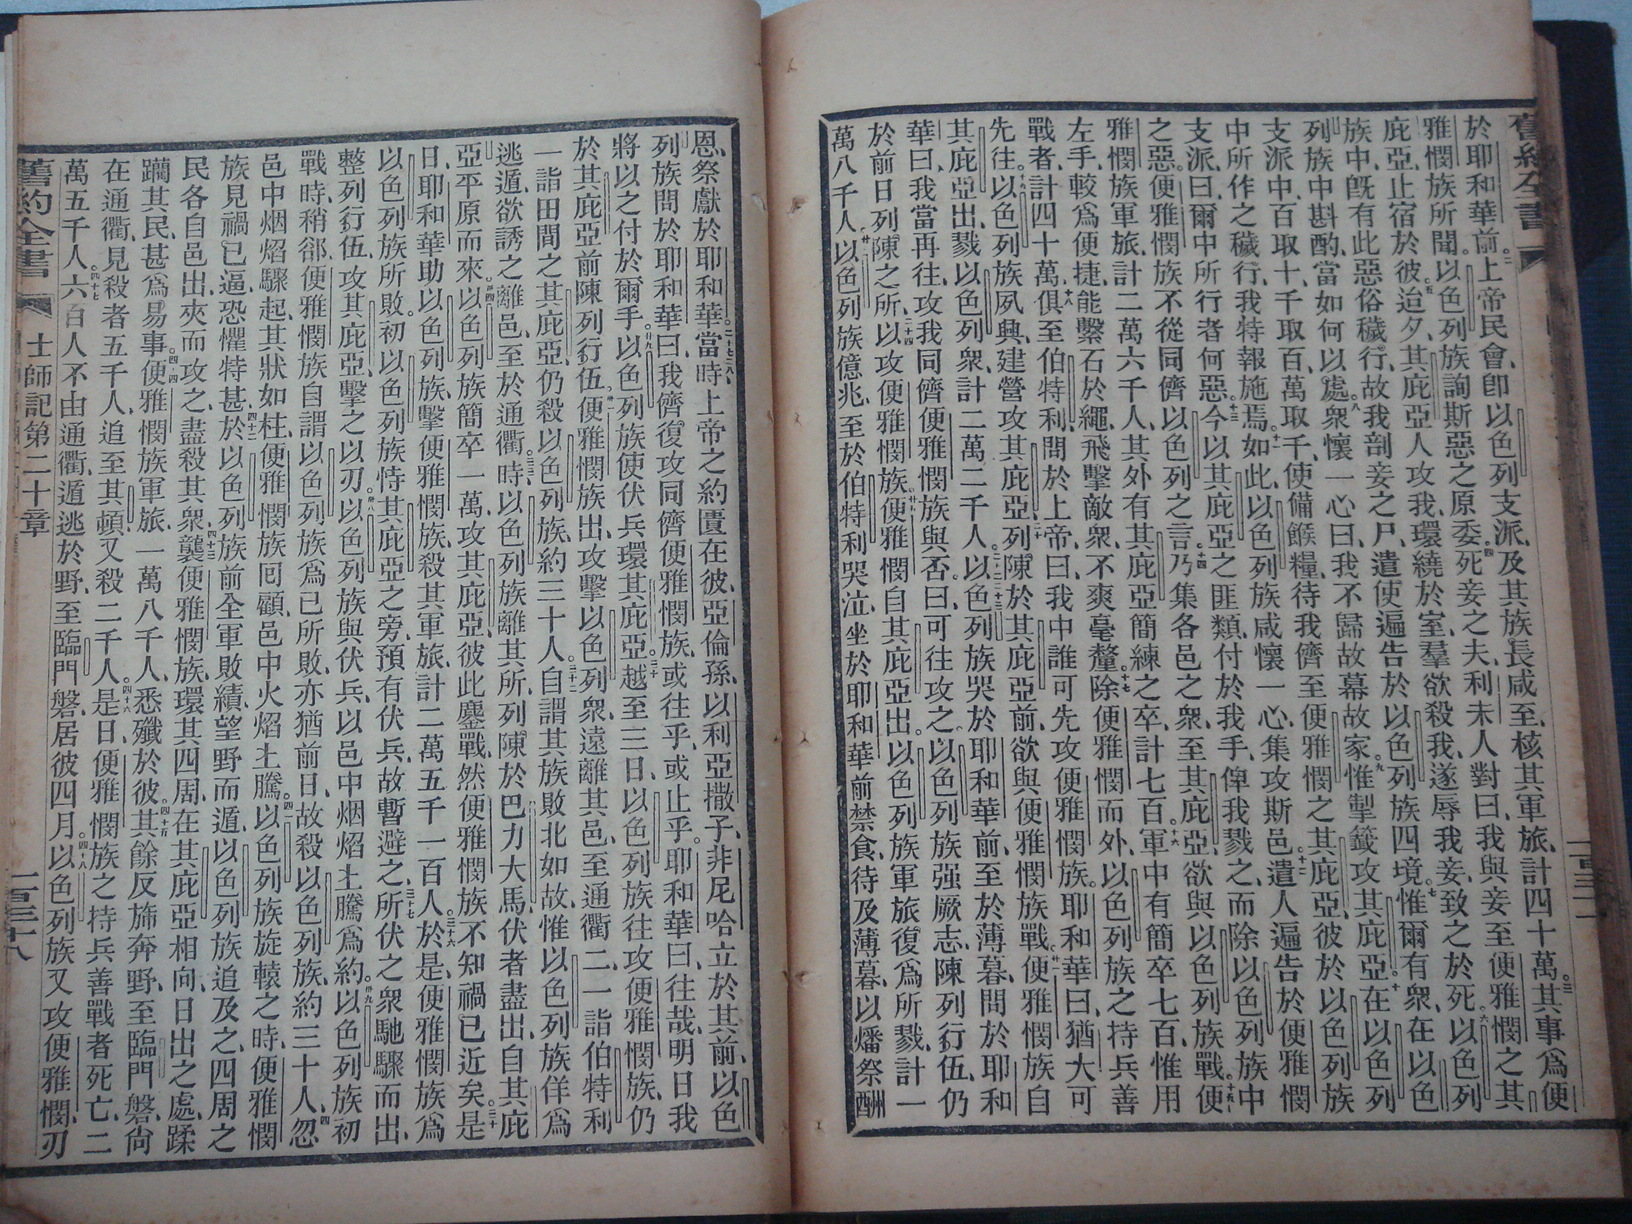 於耶和華前二上帝民會卽以色列支派及其族長咸至核其軍旅計四十萬三其事爲便
雅憫族所聞以色列族詢斯惡之原委四死妾之夫利未人對曰我與妾至便雅憫之其
庇亞止宿於彼五迨夕其庇亞人攻我環繞於室羣欲殺我遂辱我妾致之於死六以色列
族中旣有此惡俗穢行故我剖妾之尸遣使遍告於以色列族四境七惟爾有衆在以色
列族中斟酌當如何以處八衆懷一心曰我不歸故幕故家九惟掣籤攻其庇亞十在以色列
支派中百取十千取百萬取千使備餱糧待我儕至便雅憫之其庇亞彼於以色列族
中所作之穢行我特報施焉十一如此以色列族咸懷一心集攻斯邑十二遣人遍告於便雅憫
支派曰爾中所行者何惡十三今以其庇亞之匪類付於我手俾我戮之而除以色列族中
之惡便雅憫族不從同儕以色列之言十四乃集各邑之衆至其庇亞欲與以色列族戰十五便
雅憫族軍旅計二萬六千人其外有其庇亞簡練之卒計七百十六軍中有簡卒七百惟用
左手較爲便捷能繫石於繩飛擊敵衆不爽毫釐十七除便雅憫而外以色列族之持兵善
戰者計四十萬十八俱至伯特利問於上帝曰我中誰可先攻便雅憫族耶和華曰猶大可
先往十九以色列族夙興建營攻其庇亞二十列陳於其庇亞前欲與便雅憫族戰廿一便雅憫族自
其庇亞出戮以色列衆計二萬二千人二十二二十三以色列族哭於耶和華前至於薄暮問於耶和
華曰我當再往攻我同儕便雅憫族與否曰可往攻之以色列族强厥志陳列行伍仍
於前日列陳之所二十四以攻便雅憫族廿五便雅憫自其庇亞出以色列族軍旅復爲所戮計一
萬八千人廿六以色列族億兆至於伯特利哭泣坐於耶和華前禁食待及薄暮以燔祭酬
恩祭獻於耶和華二十七二十八當時上帝之約匱在彼亞倫孫以利亞撒子非尼哈立於其前以色
列族問於耶和華曰我儕復攻同儕便雅憫族或往乎或止乎耶和華曰往哉明日我
將以之付於爾手廿九以色列族使伏兵環其庇亞三十越至三日以色列族往攻便雅憫族仍
於其庇亞前陳列行伍卅一便雅憫族出攻擊以色列衆遠離其邑至通衢二一詣伯特利
一詣田間之其庇亞仍殺以色列族約三十人三十二自謂其族敗北如故惟以色列族佯爲
逃遁欲誘之離邑至於通衢三十三時以色列族離其所列陳於巴力大馬伏者盡出自其庇
亞平原而來卅四以色列族簡卒一萬攻其庇亞彼此鏖戰然便雅憫族不知禍已近矣三十五是
日耶和華助以色列族擊便雅憫族殺其軍旅計二萬五千一百人三十六於是便雅憫族爲
以色列族所敗初以色列族恃其庇亞之旁預有伏兵故暫避之三十七所伏之衆馳驟而出
整列行伍攻其庇亞擊之以刃卅八以色列族與伏兵以邑中烟焰上騰爲約卅九以色列族初
戰時稍郤便雅憫族自謂以色列族爲已所敗亦猶前日故殺以色列族約三十人四十忽
邑中烟焰驟起其狀如柱便雅憫族囘顧邑中火焰上騰四十一以色列族旋轅之時便雅憫
族見禍已逼恐懼特甚四十二於以色列族前全軍敗績望野而遁以色列族追及之四周之
民各自邑出夾而攻之盡殺其衆四十三襲便雅憫族環其四周在其庇亞相向日出之處蹂
躪其民甚爲易事四十四便雅憫族軍旅一萬八千人悉殲於彼四十五其餘反斾奔野至臨門磐尙
在通衢見殺者五千人追至其頓又殺二千人四十六是日便雅憫族之持兵善戰者死亡二
萬五千人四十七六百人不由通衢遁逃於野至臨門磐居彼四月四十八以色列族又攻便雅憫刃
舊約全書 士師記第二十章 二百三十八